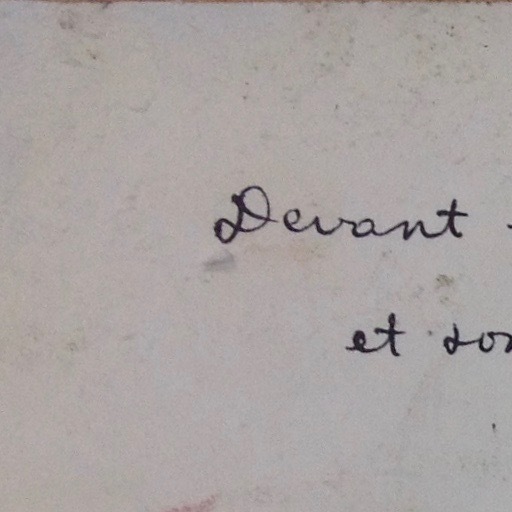 Devant
et son